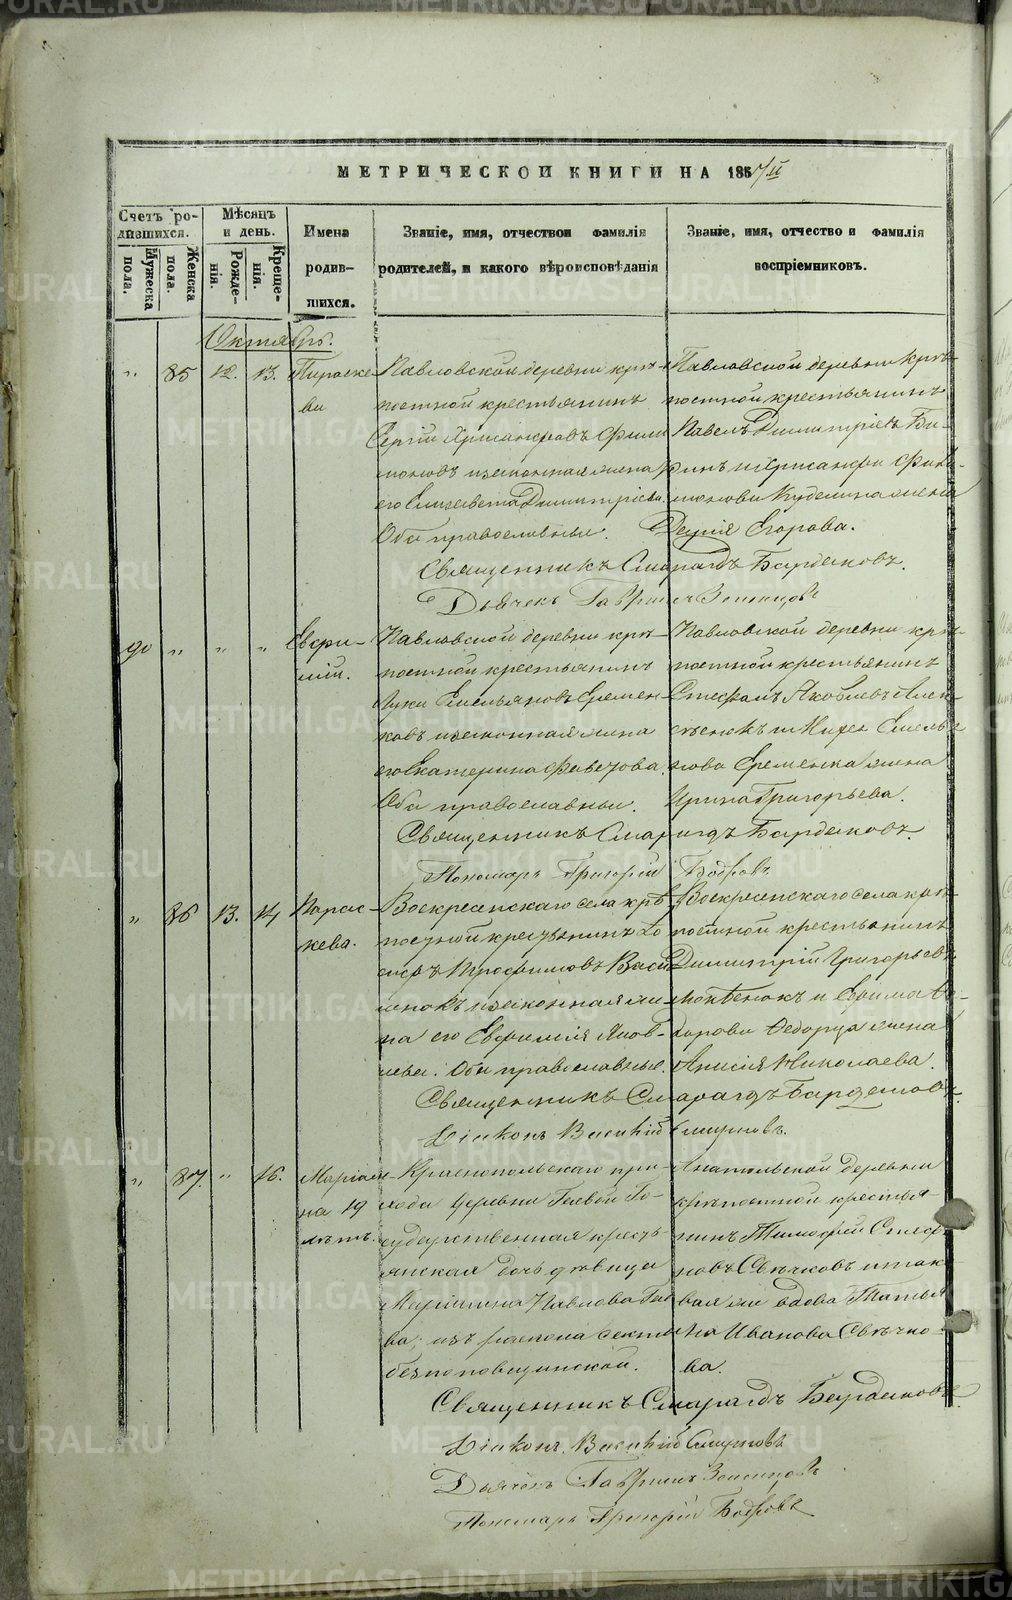 МЕТРИЧЕСКОЙ КНИГИ НА 1857/II
Счетъ ро-
дившихся.
Мужеска пола.
Женска пола.
Мѣсяцъ
и день.
Рожде-
нія.
Креще-
нія.
Имена
родив-
шихся.
Званіе, имя, отчество и фамилія
родителей, и какого вѣроисповѣданія
Званіе, имя, отчество и фамилія
воспріемниковъ.
Октябрь.
" 85 12. 13. Параске-
ва
Павловской деревни крѣ-
постной крестьянинъ
Сергій Хрисанфовъ Фили
моновъ и законная жена
его Елисавета Димитріева
Оба православные.
Павловской деревни крѣ-
постной крестьянинъ
Павелъ Димитріевъ
и Хрисанфа Фили-
монова жена
Егорова.
Священникъ Смарагдъ Бардаковъ.
Дьячекъ Гавріилъ
90 " " " Евфи-
мій.
Павловской деревни крѣ-
постной крестьянинъ
Лука Емельяновъ Еремен-
ковъ и законная жена
его Екатерина
Оба православные.
Павловской деревни крѣ-
постной крестьянинъ
Стефанъ Яковлевъ Алек-
сѣенокъ и Емелья
нова Еременка жена
Ирина Григорьева.
Священникъ Смарагдъ Бардаковъ
Пономарь Григорій Бобровъ
" 86 13. 14 Парас-
кева.
Воскресенскаго села крѣ-
постной крестьянинъ Іо
сифъ Трофимовъ Васи
ленокъ и законная же-
на его Евфимія Яков-
лева. Оба православные.
Воскресенскаго села крѣ-
постной крестьянинъ
Димитрій Григорьевъ
и Ефима Ѳе-
дорова жена
Анисія Николаева.
Священникъ Смарагдъ Бардаковъ.
Діаконъ Василій Смирновъ.
" 87. " 16. Маріам-
на 19
лѣтъ.
Краснопольскаго при-
хода деревни Го-
сударственная кресть-
янская дочь дѣвица
Маріамна Павлова
ва, изъ раскола секты
безпоповщинской.
Анатольской деревни
крѣпостной крестья-
нинъ Тимофей Стеф
новъ Свѣчковъ и так-
вая же вдова Татья
на Иванова Свѣчко-
ва.
Священникъ Смарагдъ Бардаковъ
Діаконъ Василій Смирновъ
Дьячекъ Гавріилъ
Пономарь Григорій Бобровъ
METRIKI.GASO-URAL.RU